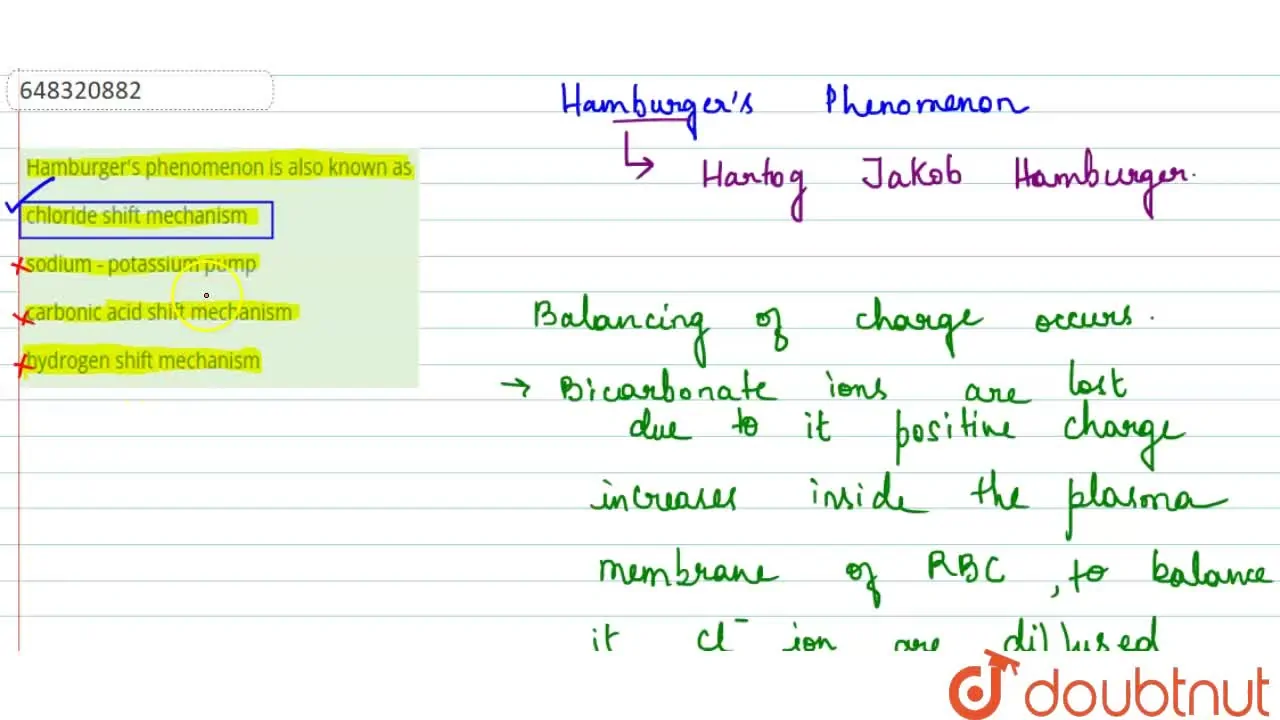 648320882
Hamburger's phenomenon is also known as
chloride shift mechanism
sodium - potassium pump
carbonic acid shift mechanism
hydrogen shift mechanism
Hamburger's Phenomenon
Hartog Jakob Hamburger.
Balancing of charge occurs.
→ Bicarbonate ions are lost
due to it positive charge
increases inside the plasma
membrane of RBC, to balance
it Cl⁻ ion are diffused
doubtnut